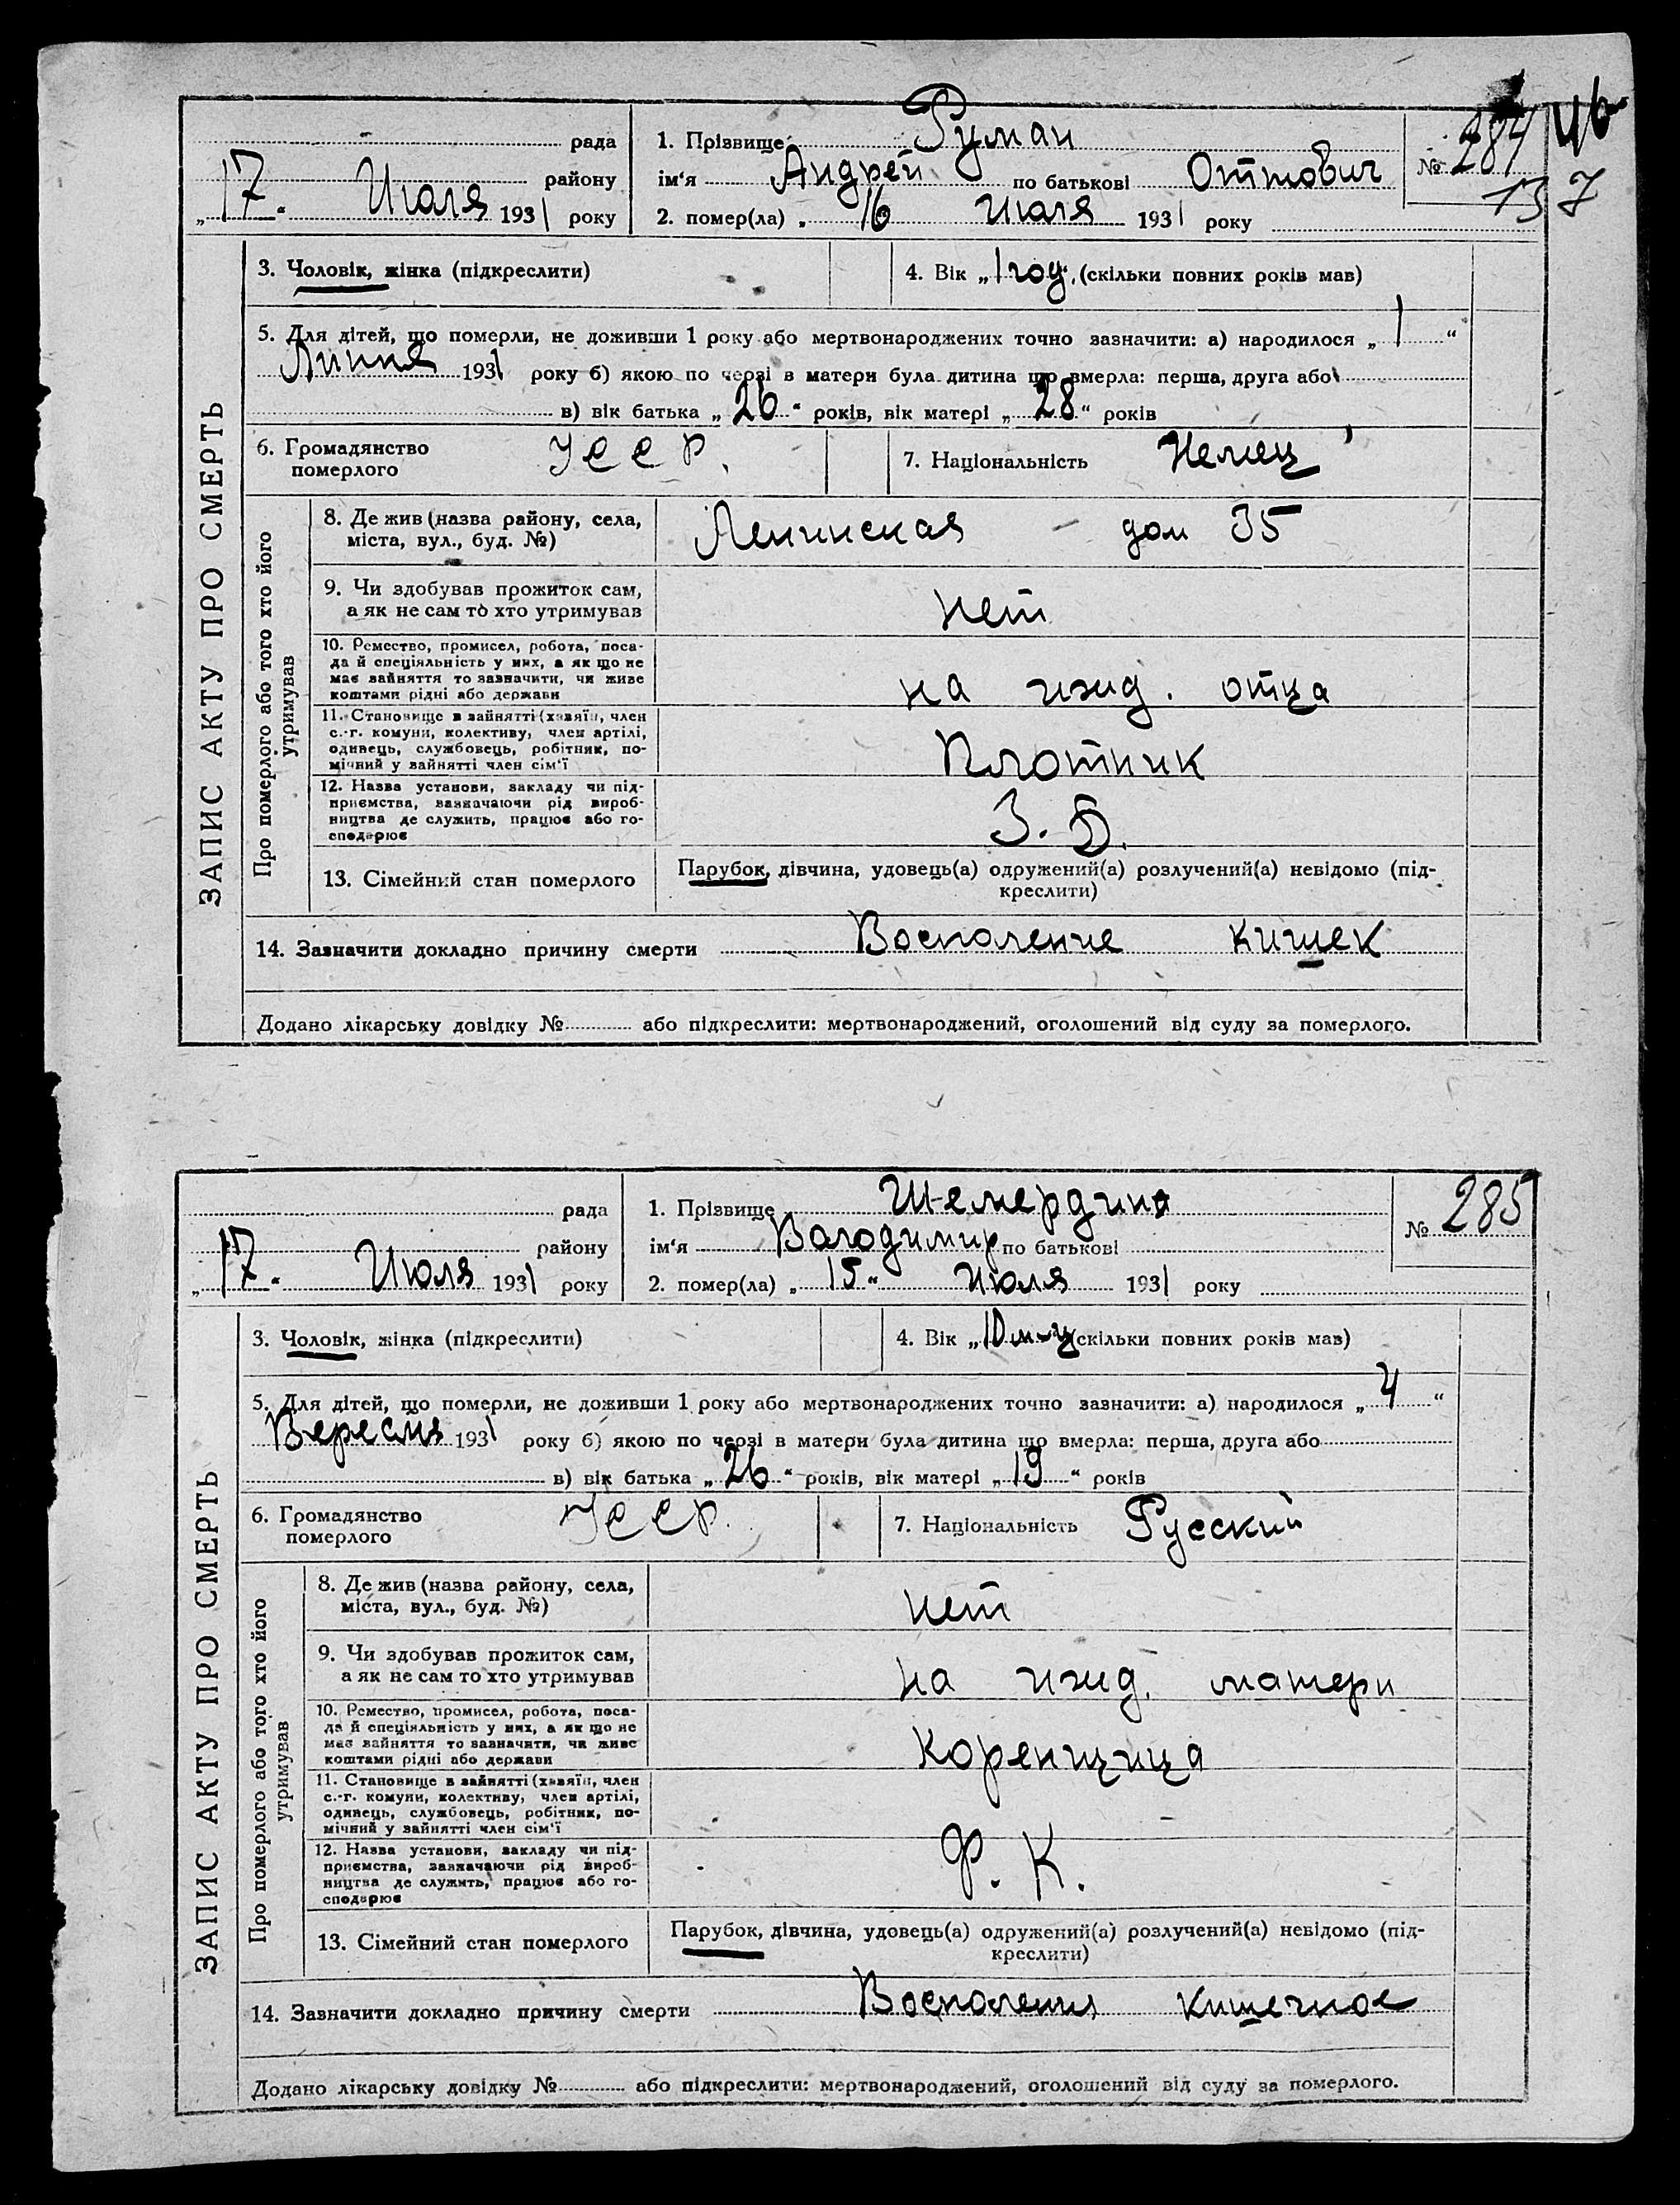 рада
району
„ 17 “ Июля 1931 року
1. Прізвище Руман
ім‘я Андрей по батькові Оттович
2. помер(ла) „ 16 Июля 1931 року
№ 284
137
ЗАПИС АКТУ ПРО СМЕРТЬ
3. Чоловік, жінка (підкреслити)
4. Вік „ 1 год “ (скільки повних років мав)
5. Для дітей, що померли, не доживши 1 року або мертвонароджених точно зазначити: а) народилося „ 1 “
Липня 1931 року б) якою по черзі в матери була дитина що вмерла: перша, друга або
в) вік батька „ 26 “ років, вік матері „ 28 “ років
6. Громадянство
померлого
УССР.
7. Національність Немец
Про померлого або того хто його
утримував
8. Де жив (назва району, села,
міста, вул., буд. №)
Ленинская – дом 35
9. Чи здобував прожиток сам,
а як не сам то хто утримував
нет
10. Ремество, промисел, робота, поса-
да й спеціяльність у них, а як що не
має зайняття то зазначити, чи живе
коштами рідні або держави
на ижд. отца
11. Становище в зайнятті (хазяїн, член
с.-г. комуни, колективу, член артілі,
одинець, службовець, робітник, по-
мічний у зайнятті член сім‘ї
Плотник
12. Назва установи, закладу чи під-
приємства, зазначаючи рід вироб-
ництва де служить, працює або го-
сподарює
З. Д.
13. Сімейний стан померлого
Парубок, дівчина, удовець(а) одружений(а) розлучений(а) невідомо (під-
креслити)
14. Зазначити докладно причину смерти Восполение кишек
Додано лікарську довідку № або підкреслити: мертвонароджений, оголошений від суду за померлого.
рада
району
„ 17 “ Июля 1931 року
1. Прізвище Шемердина
ім‘я Володимир по батькові
2. помер(ла) „ 15 “ Июля 1931 року
№ 285
ЗАПИС АКТУ ПРО СМЕРТЬ
3. Чоловік, жінка (підкреслити)
4. Вік „ 10 м-ц скільки повних років мав)
5. Для дітей, що померли, не доживши 1 року або мертвонароджених точно зазначити: а) народилося „ 4 “
Вересня 1931 року б) якою по черзі в матери була дитина що вмерла: перша, друга або
в) вік батька „ 26 “ років, вік матері „ 19 “ років
6. Громадянство
померлого
УССР.
7. Національність Русский
Про померлого або того хто його
утримував
8. Де жив (назва району, села,
міста, вул., буд. №)
нет
9. Чи здобував прожиток сам,
а як не сам то хто утримував
на ижд. матери
10. Ремество, промисел, робота, поса-
да й спеціяльність у них, а як що не
має зайняття то зазначити, чи живе
коштами рідні або держави
Коренщица
11. Становище в зайнятті (хазяїн, член
с.-г. комуни, колективу, член артілі,
одинець, службовець, робітник, по-
мічний у зайнятті член сім‘ї
12. Назва установи, закладу чи під-
приємства, зазначаючи рід вироб-
ництва де служить, працює або го-
сподарює
Ф. К.
13. Сімейний стан померлого
Парубок, дівчина, удовець(а) одружений(а) розлучений(а) невідомо (під-
креслити)
14. Зазначити докладно причину смерти Восполения кишечное
Додано лікарську довідку № або підкреслити: мертвонароджений, оголошений від суду за померлого.